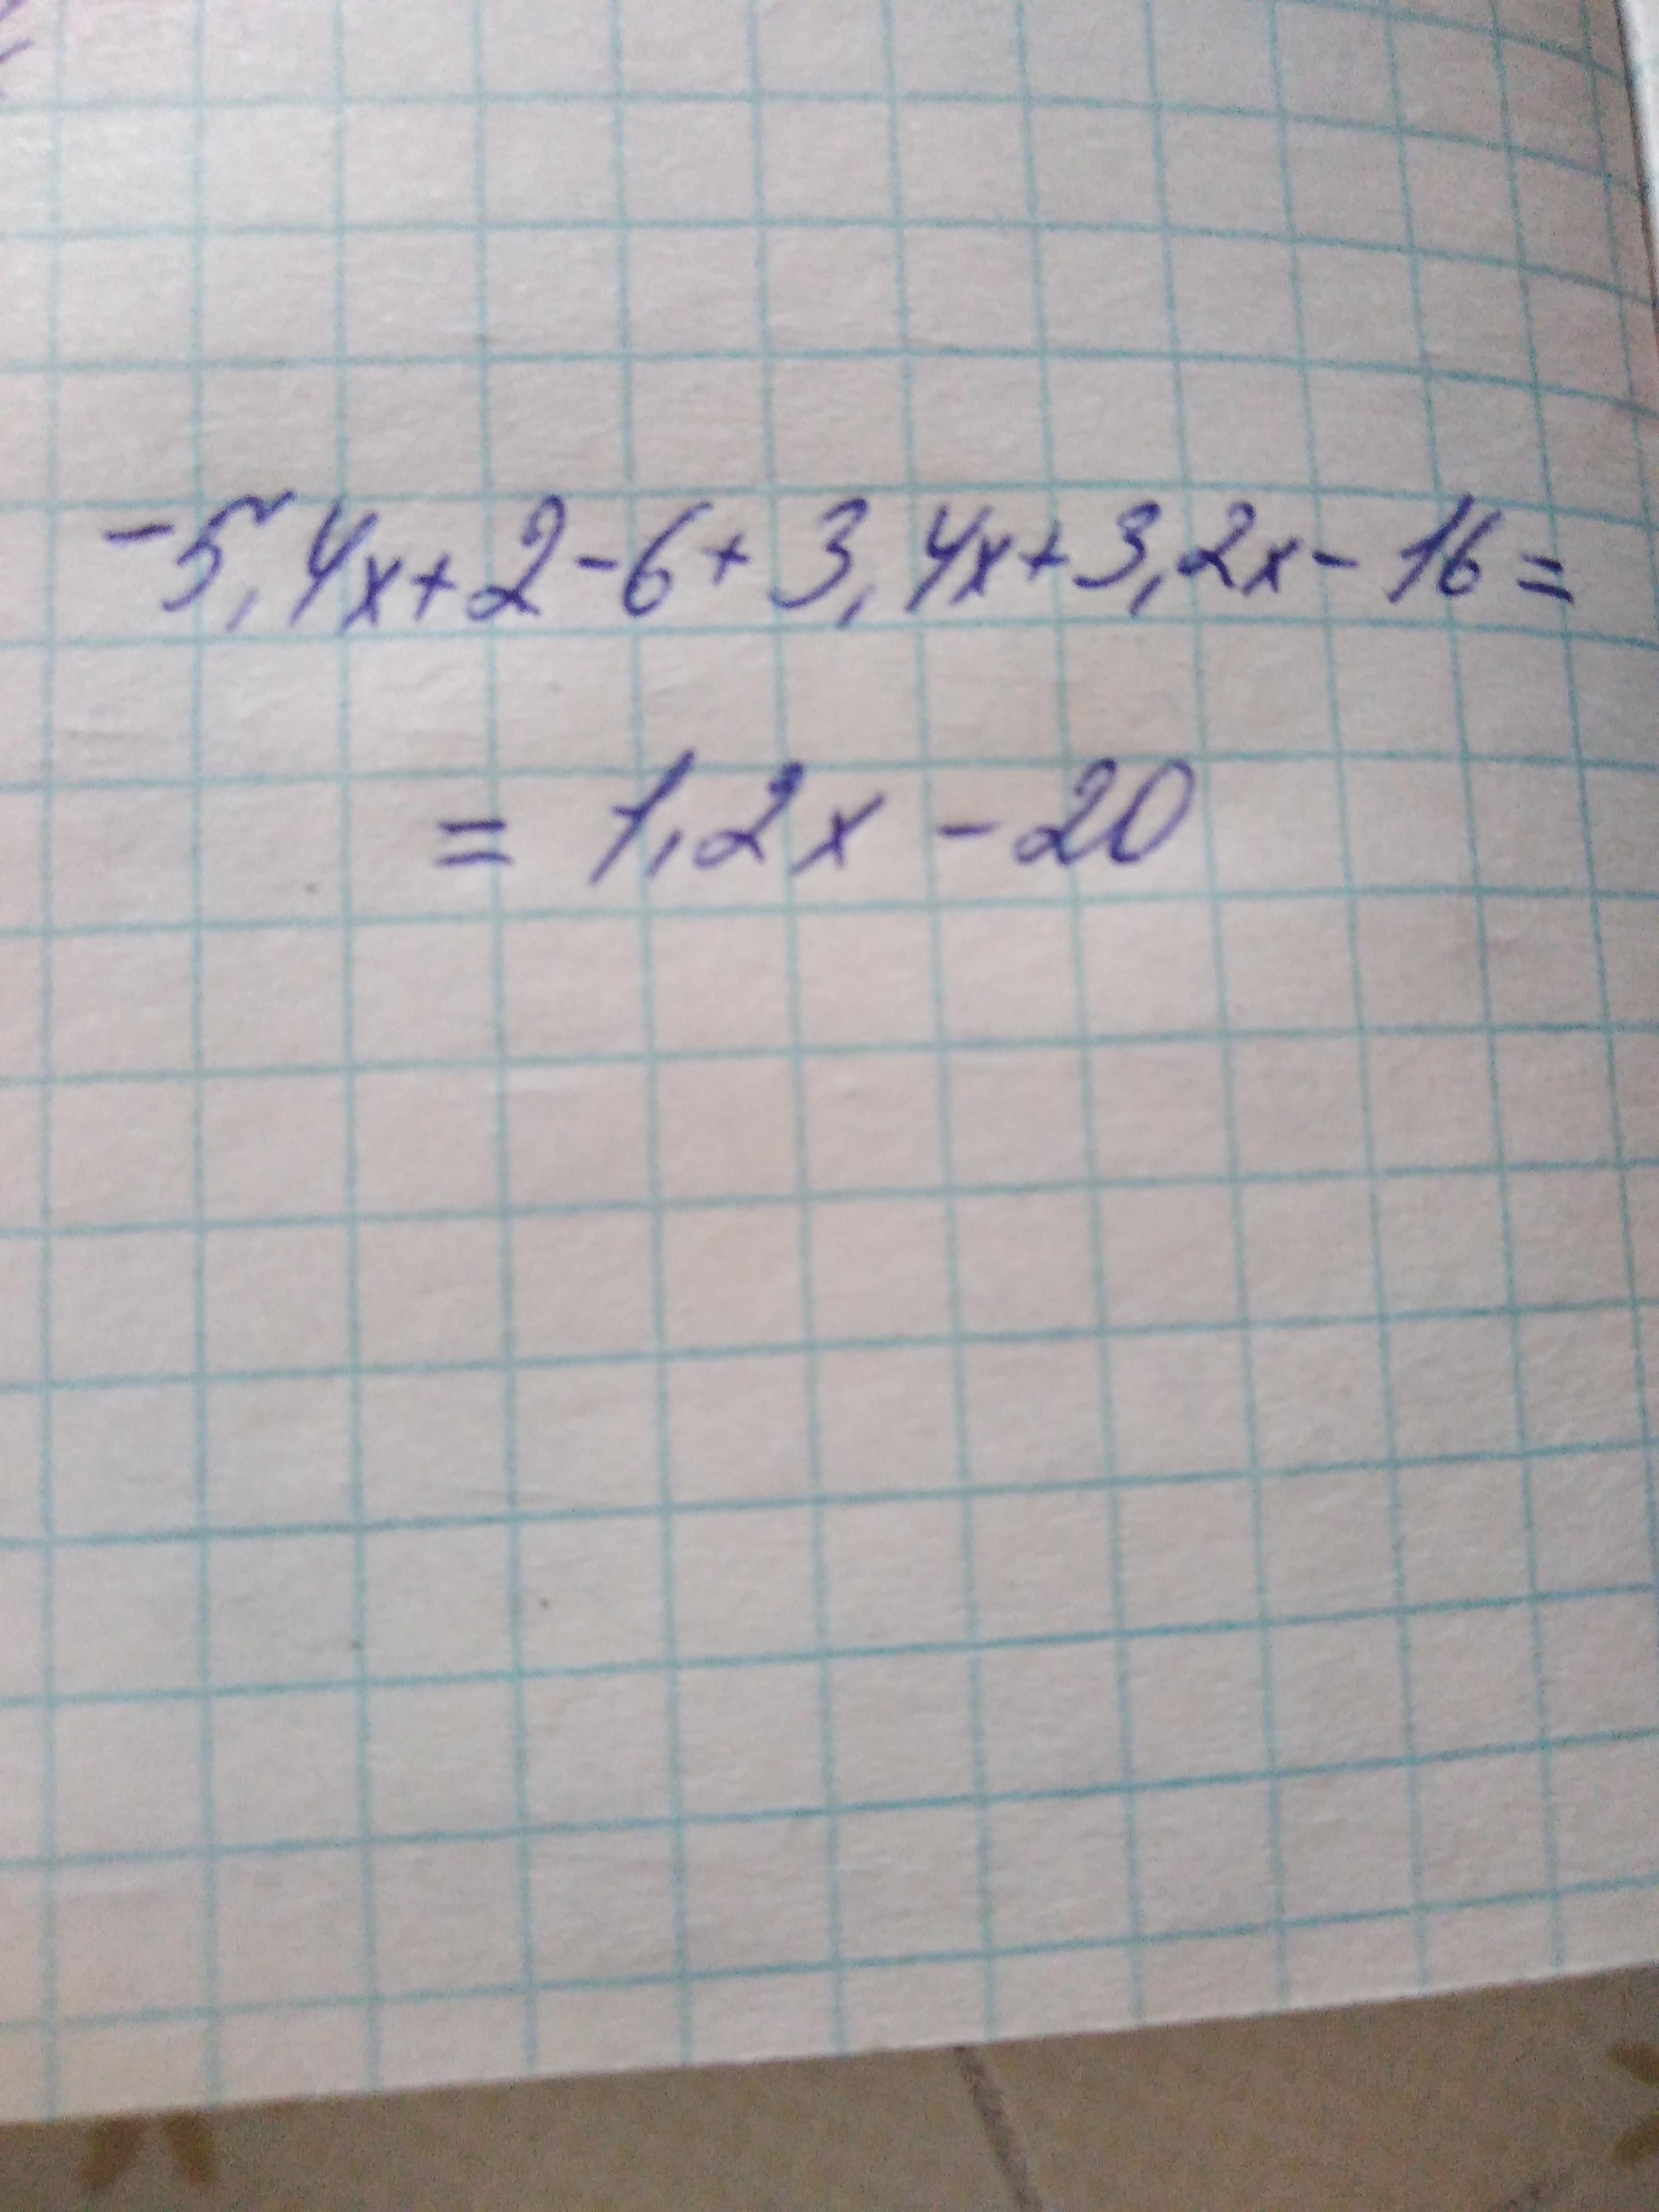 -5,4x+2-6+3,4x+3,2x-16=
= 1,2x - 20